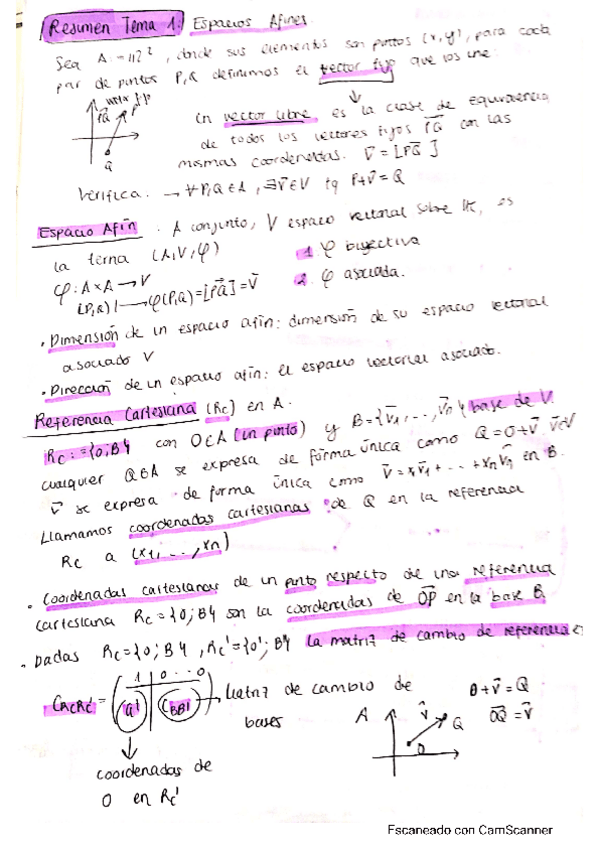 Resumen Tema 1: Espacios Afines.
Sea A = ℝ², donde sus elementos son puntos (x,y), para cada
par de puntos P,Q definimos el vector fijo que los une:
vector fijo
PQ P
Q
Un vector libre, es la clase de equivalencia
de todos los vectores fijos PQ con las
mismas coordenadas. V⃗ = [PQ]
Verifica: → ∀P,Q∈A, ∃v⃗∈V tq P+v⃗=Q
Espacio Afín: A conjunto, V espacio vectorial sobre K, es
la terna (A,V,φ) 1. φ biyectiva
φ: A×A → V 2. φ asociada.
(P,Q) |→ φ(P,Q)=[PQ]=v⃗
· Dimensión de un espacio afín: dimensión de su espacio vectorial
asociado V
· Dirección de un espacio afín: el espacio vectorial asociado.
Referencia Cartesiana (Rc) en A.
Rc:={O;B} con O∈A (un punto) y B={v⃗1,...,v⃗n} base de V
cualquier Q∈A se expresa de forma única como Q=O+v⃗, v⃗∈V
v⃗ se expresa de forma única como v⃗=x1v⃗1+...+xnv⃗n en B.
Llamamos coordenadas cartesianas de Q en la referencia
Rc a (x1,...,xn)
· Coordenadas cartesianas de un punto respecto de una referencia
cartesiana Rc={O;B} son la coordenadas de OP en la base B.
· Dadas Rc={O;B}, Rc'={O';B'} la matriz de cambio de referencia es
1 0 ... 0
CRcRc' = (a' | CBB') → Matriz de cambio de
bases
coordenadas de
O en Rc'
O+v⃗=Q
OQ=v⃗
A v⃗ Q
O
Escaneado con CamScanner